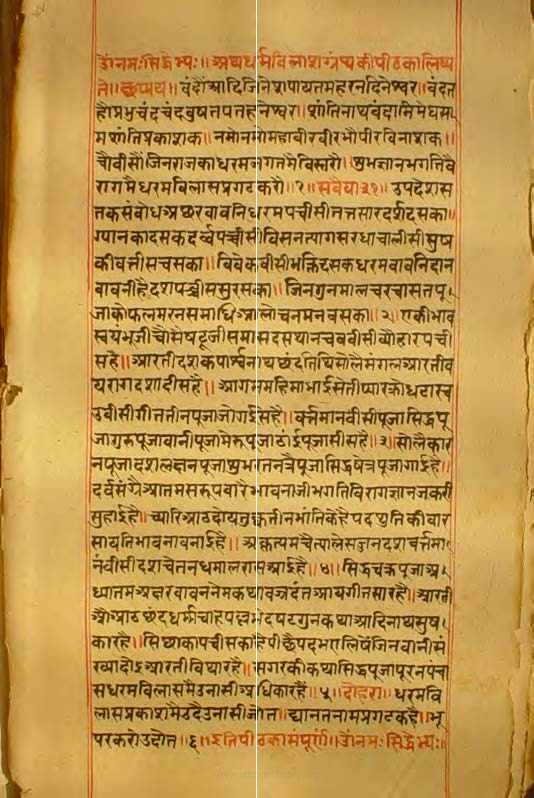 उोंनमःसिद्धेभ्यः॥ अथधर्मविलाशग्रंथकीपीठकालिष्य
ते॥ छप्पय॥ वंदौंआदिजिनेशपायतमहरनदिनेश्वर॥ वंदत
हौप्रभुचंदचंददुषतपतहनेश्वर॥ शांतिनाथवंदामिमेघसा
मशांतिप्रकाशक॥ नमोनमोमहावीरवीरभौपीरविनाशक॥
चौवीसौंजिनराजकाधरमजगतमैविस्तरो॥ शुभज्ञानभगतिवै
रागमैधरमविलासप्रगटकरौ॥१॥ सवैया३१॥ उपदेशस
तकसंबोधअछरबावनिधरमपचीसीतत्तसारदर्शदसका॥
ग्यानकादसकदर्व्वपच्चीसीविसनत्यागसरधाचालीसीसुष
कीबत्तीसचसका॥ विवेकवीसीभक्तिदसकधरमबावनिदान
बावनीहैदशपच्चीससुरसका॥ जिनगुनमालचरचासतपू
जाकोफलमरनसमाधिआलोचनमनबसका॥२॥ एकीभाव
स्वयंभूजीचौसैषट्रजीसमासदसथानचवबीसीव्यौहारपची
सहै॥ आरतीदशकपार्श्वनाथछंदतिथिसोलैमंगलआरतीव
यरागदशादीसहै॥ आगममहिमाभाईसेतीप्यारकोधटास्व
उबीसीगीततीनपूजाजोगाईसहै॥ वर्त्तमानवीसीपूजासिद्धपू
जागुरुपूजावानीपूजामेरुपूजाठाईपूजासीसहै॥३॥ सोलैकार
नपूजादशलक्षनपूजाशुभरतनत्रैपूजासिद्धषेत्रपूजागाईहै॥
दर्वसंग्रैआतमसरूपबारैभावनाजीभगतिविरागज्ञानजकरी
सुहाईहै॥ च्यारिआठदोयतुकतीनभांतिकेहैपदथुतिकीबार
सायतिभावनावनाईहै॥ अकृत्यमचैत्यालेसज्जनदशवर्त्तमा
नवीसीदशचेतनधमालरासआईहै॥४॥ सिद्धचक्रपूजाअ
ध्यातमअक्षरबावननेमकथावज्रदंतआयगीतसारहै॥ आरती
औआठछंदधर्मचाहपल्लभेदषटगुनकथाआदिनाथसुष
कारहै॥ सिष्याकापचीसकाहैपीछैपदभएलिषेजिनवानीसं
ख्यादोऽआरतीविचारहै॥ सगरकीकथासिद्धपूजापूरनपंचा
सधरमविलासमैउनासीअधिकारहै॥५॥ दोहरा॥ धरमवि
लासप्रकाशमैउदैउनासीजोत॥ द्यानतनामप्रगटकहै॥भू
परकरोउदोत॥६॥ इतिपीठकासंपूर्णं॥ उोंनमःसिद्धेभ्यः॥